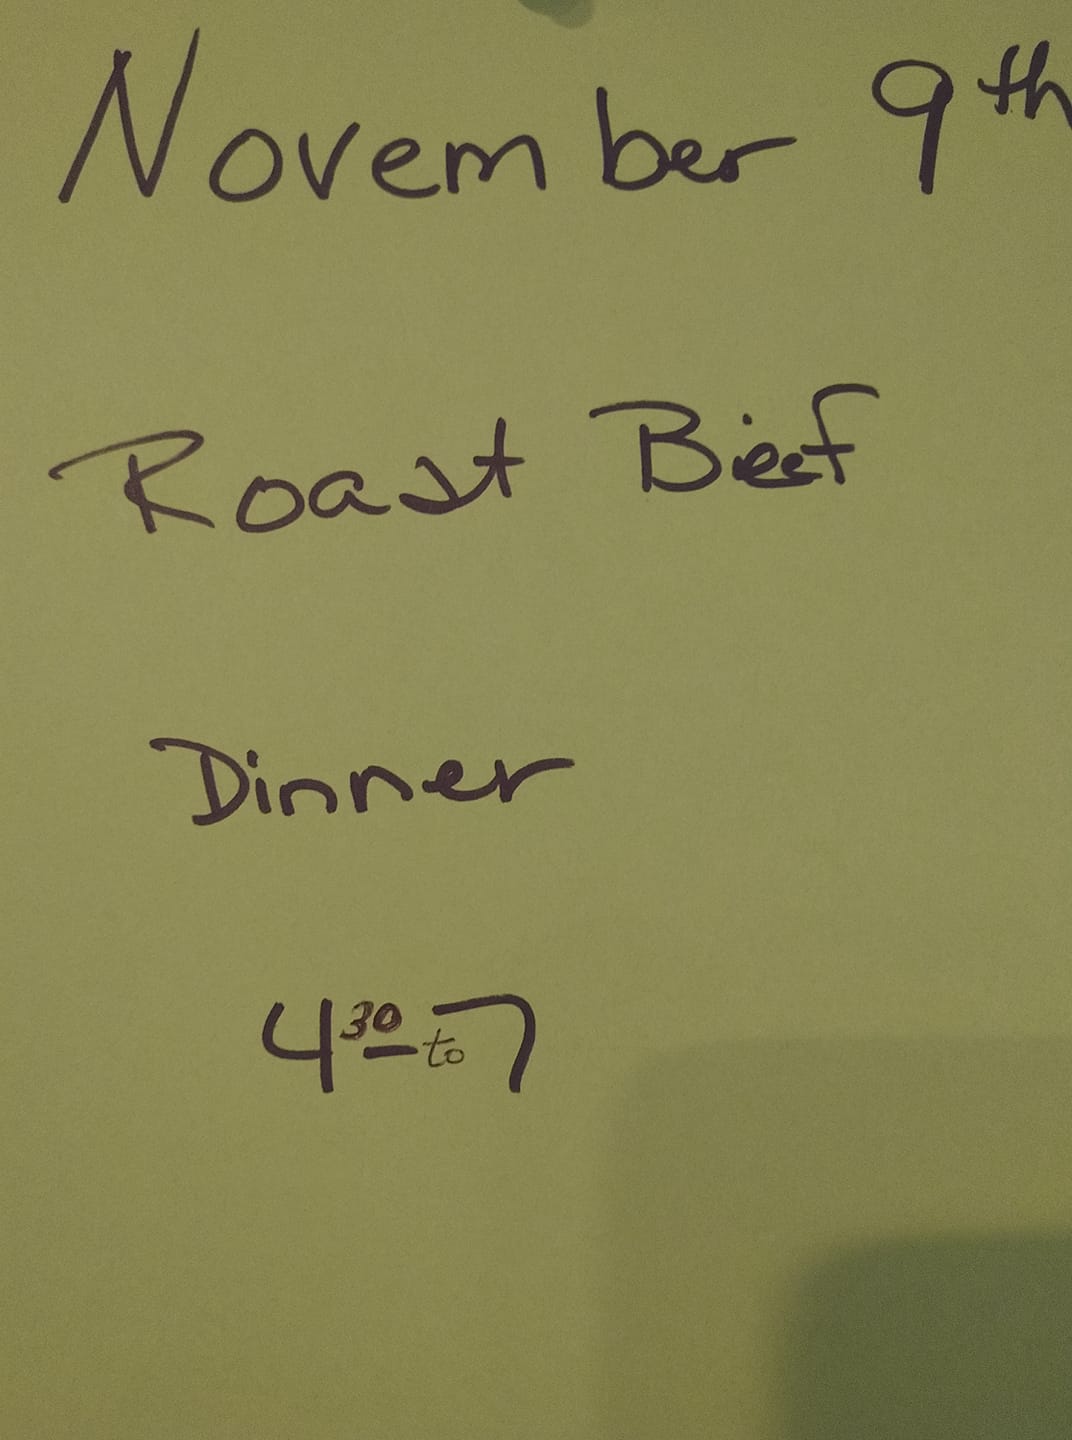 November 9th
Roast Bieef
Dinner
4 30 to 7